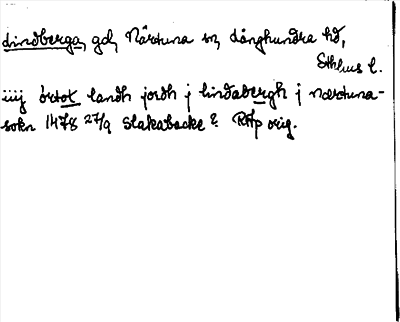 Lindberga, gd, Närtuna sn, Långhundra hd,
Sthlms l.
iiij örtot landh jordh j lindabergh j nærtuna-
sokn 1478 27/9 Slakabacke? RAp orig.